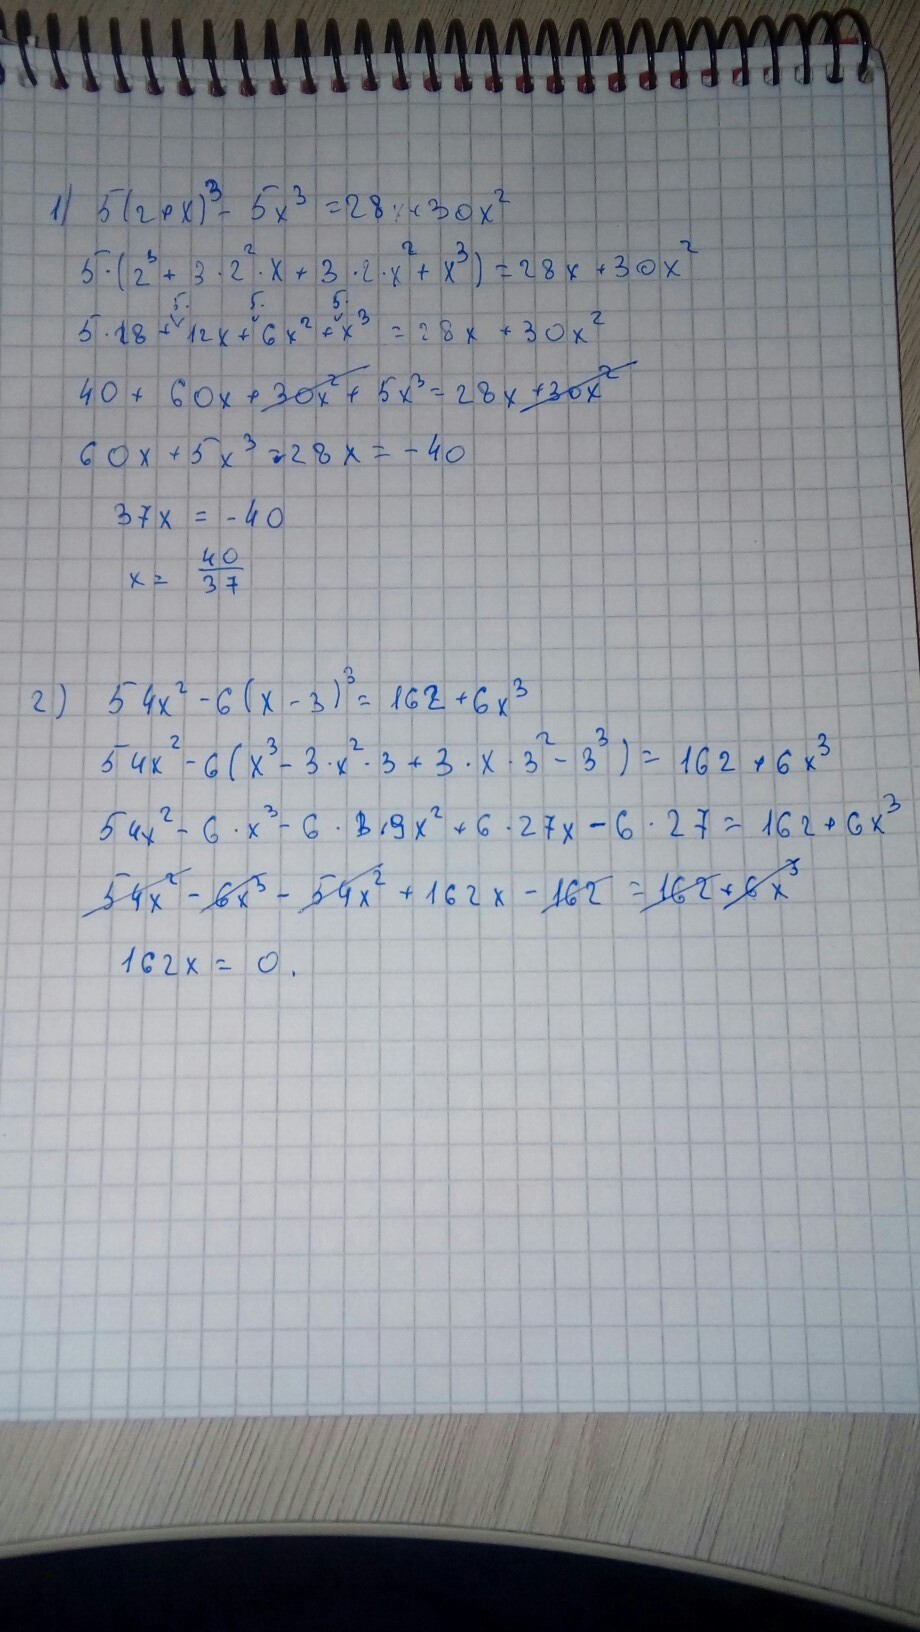 1) 5(2+x)³ - 5x³ = 28x+30x²
5·(2³ + 3·2²·x + 3·2·x² + x³) = 28x + 30x²
5. 5. 5.
5·8 + 12x + 6x² + x³ = 28x + 30x²
40 + 60x + 30x² + 5x³ = 28x + 30x²
60x + 5x³ - 28x = -40
37x = -40
x = 40/37
2) 54x² - 6(x - 3)³ = 162 + 6x³
54x² - 6(x³ - 3·x²·3 + 3·x·3² - 3³) = 162 + 6x³
54x² - 6·x³ - 6·9x² + 6·27x - 6·27 = 162 + 6x³
54x² - 6x³ - 54x² + 162x - 162 = 162 + 6x³
162x = 0.